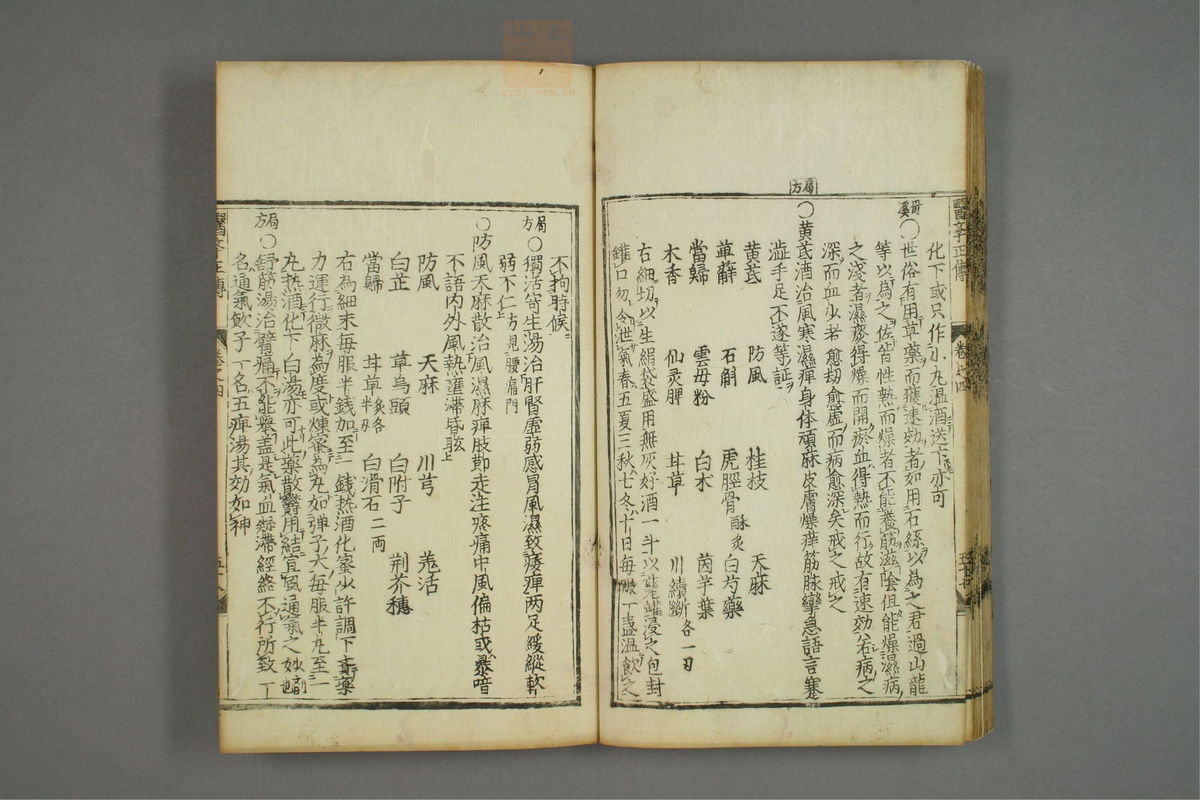 局方
化下或只作小丸温酒送下亦可
丹溪〇世俗有用草藥而獲速効者如用石絲以為之君過山龍
等以為之佐皆性熱而燥者不能養筋滋陰但能燥濕病
之淺者濕痰得燥而開瘀血得熱而行故有速効若病之
深而血少者愈劫愈虛而病愈深矣戒之戒之
〇黄芪酒治風寒濕痺身体頑麻皮膚燥痒筋脉攣急語言蹇
澁手足不遂等証
黄芪 防風 桂枝 天麻
萆薢 石斛 虎脛骨酥炙 白芍藥
當歸 雲母粉 白朮 茵芋葉
木香 仙灵脾 甘草 川續斷各一刄
右細切以生絹袋盛用無灰好酒一斗以甆罐浸之包封
罐口勿令泄氣春五夏三秋七冬十日每服一盞温飲之
醫學正傳 卷之四
不拘時候
局方〇獨活寄生湯治肝腎虛弱感冒風濕致痿痺两足緩縱軟
弱不仁方見腰痛門
〇防風天麻散治風濕麻痺肢節走注疼痛中風偏枯或暴喑
不語内外風熱壅滯昏眩
防風 天麻 川芎 羌活
白芷 草烏頭 白附子 荆芥穗
當歸 甘草炙各半刄 白滑石二两
右為細末每服半錢加至一錢热酒化蜜少許調下覺藥
力運行微麻為度或煉蜜為丸如弹子大每服半丸至一
丸热酒化下白湯亦可此藥散鬱開結宣風通氣之妙劑也
局方〇舒筋湯治臂痛不能舉盖是氣血凝滯經絡不行所致一
名通氣飲子一名五痺湯其効如神
醫學正傳 卷之四